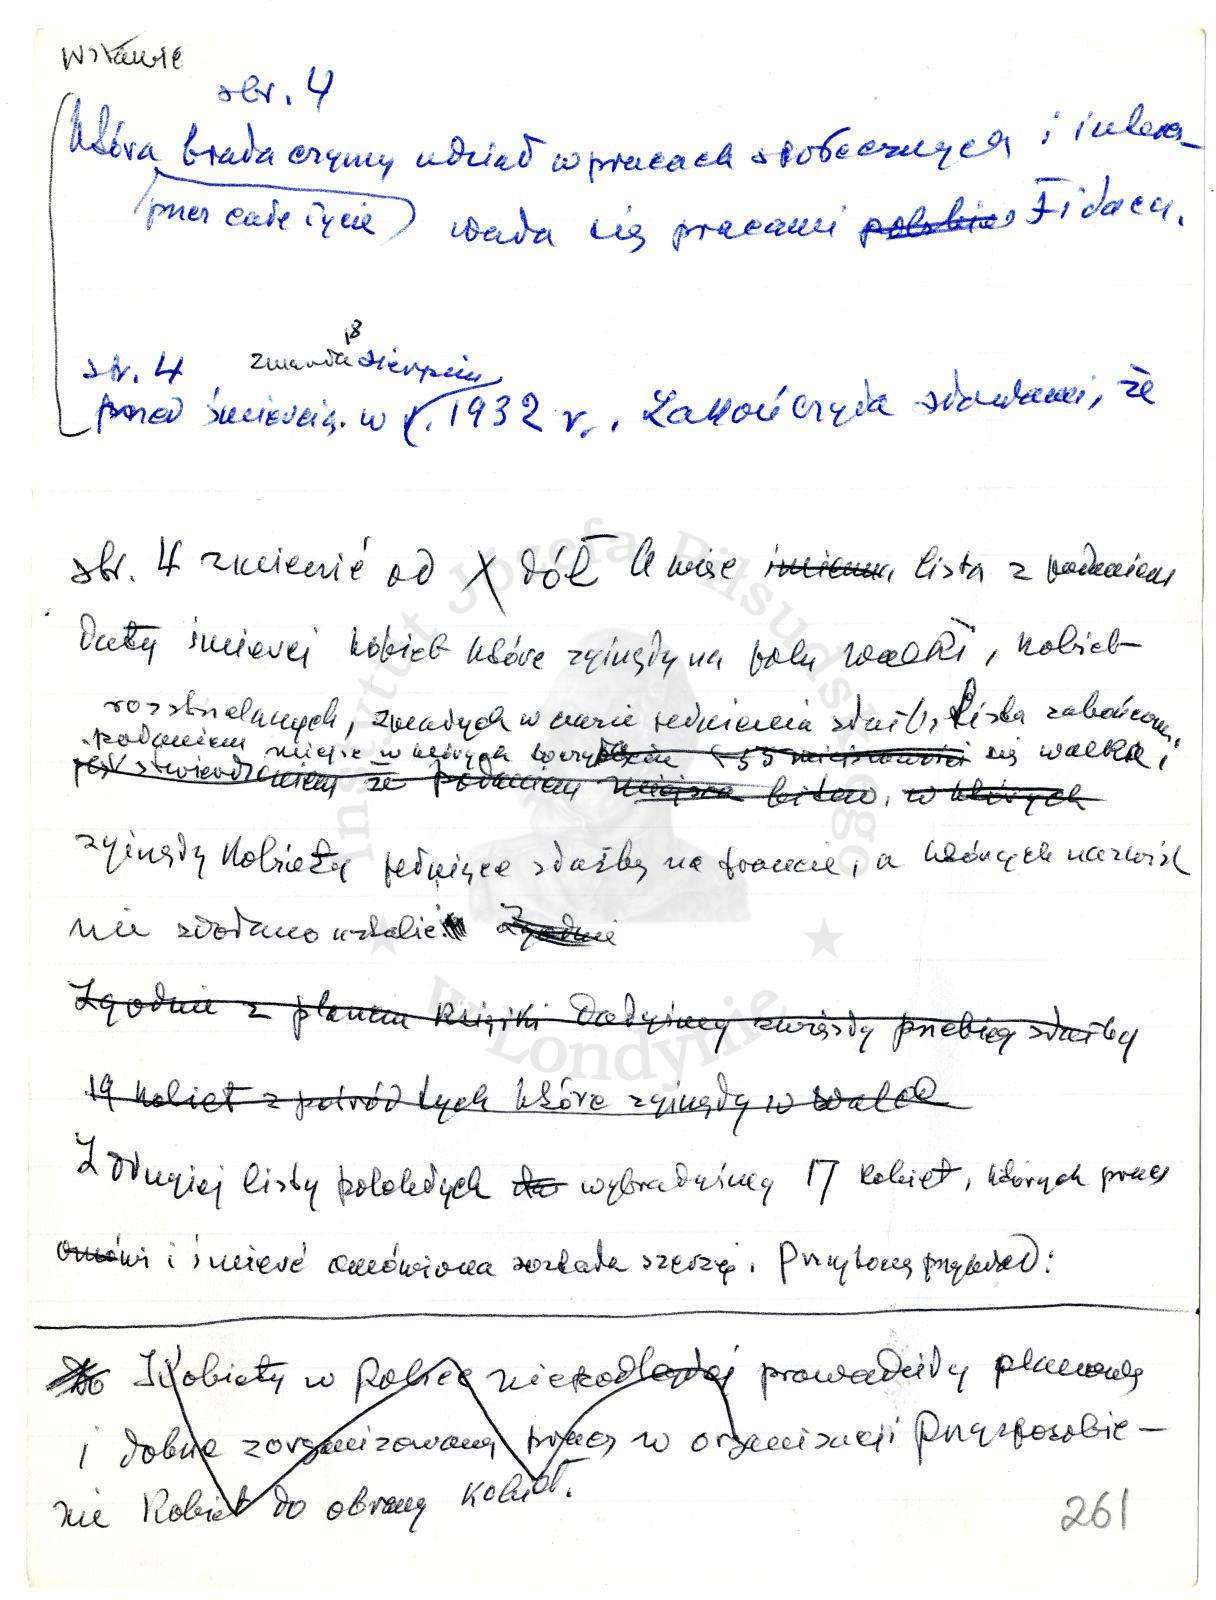 Wstawić
str. 4
która brała czynny udział w pracach społecznych i intere-
(przez całe życie) wała się pracami polskie Fidacu.
str. 4 zmarła 18 sierpnia
przed śmiercią. w r. 1932 r., zakończyła słowami, że
str. 4 zmienić od X dół A więc imienna lista z podaniem
daty śmierci kobiet które zginęły na polu walki, kobiet
rozstrzelanych, zmarłych w czasie pełnienia służb. Lista zakończona,
podaniem miejsc w których toczyła się walka i
jest stwierdzeniem że podaniem miejsca bitew, w których
zginęły kobiety pełniące służbę na froncie, a których nazwisk
nie zdołano ustalić. Zgodnie
Zgodnie z planem książki dałyśmy zwięzły przebieg służby
19 kobiet z pośród tych które zginęły w walce
Z drugiej listy poległych do wybrałyśmy 17 kobiet, których praca
omówi i śmierć omówiona została szerzej. Przytoczę przykład:
Kobiety w Polsce niepodległej prowadziły planową
i dobrze zorganizowaną pracę w organizacji Przysposobie-
nie Kobiet do obrony Kobiet.
261
Instytut Józefa Piłsudskiego
w Londynie